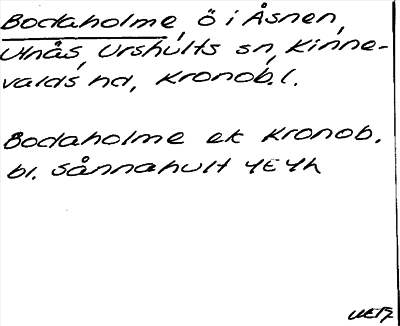 Bodaholme, ö i Åsnen,
Ulnås, Urshults sn, Kinne-
valds hd, Kronob.l.
Bodaholme ek Kronob.
bl. Sånnahult 4E4h